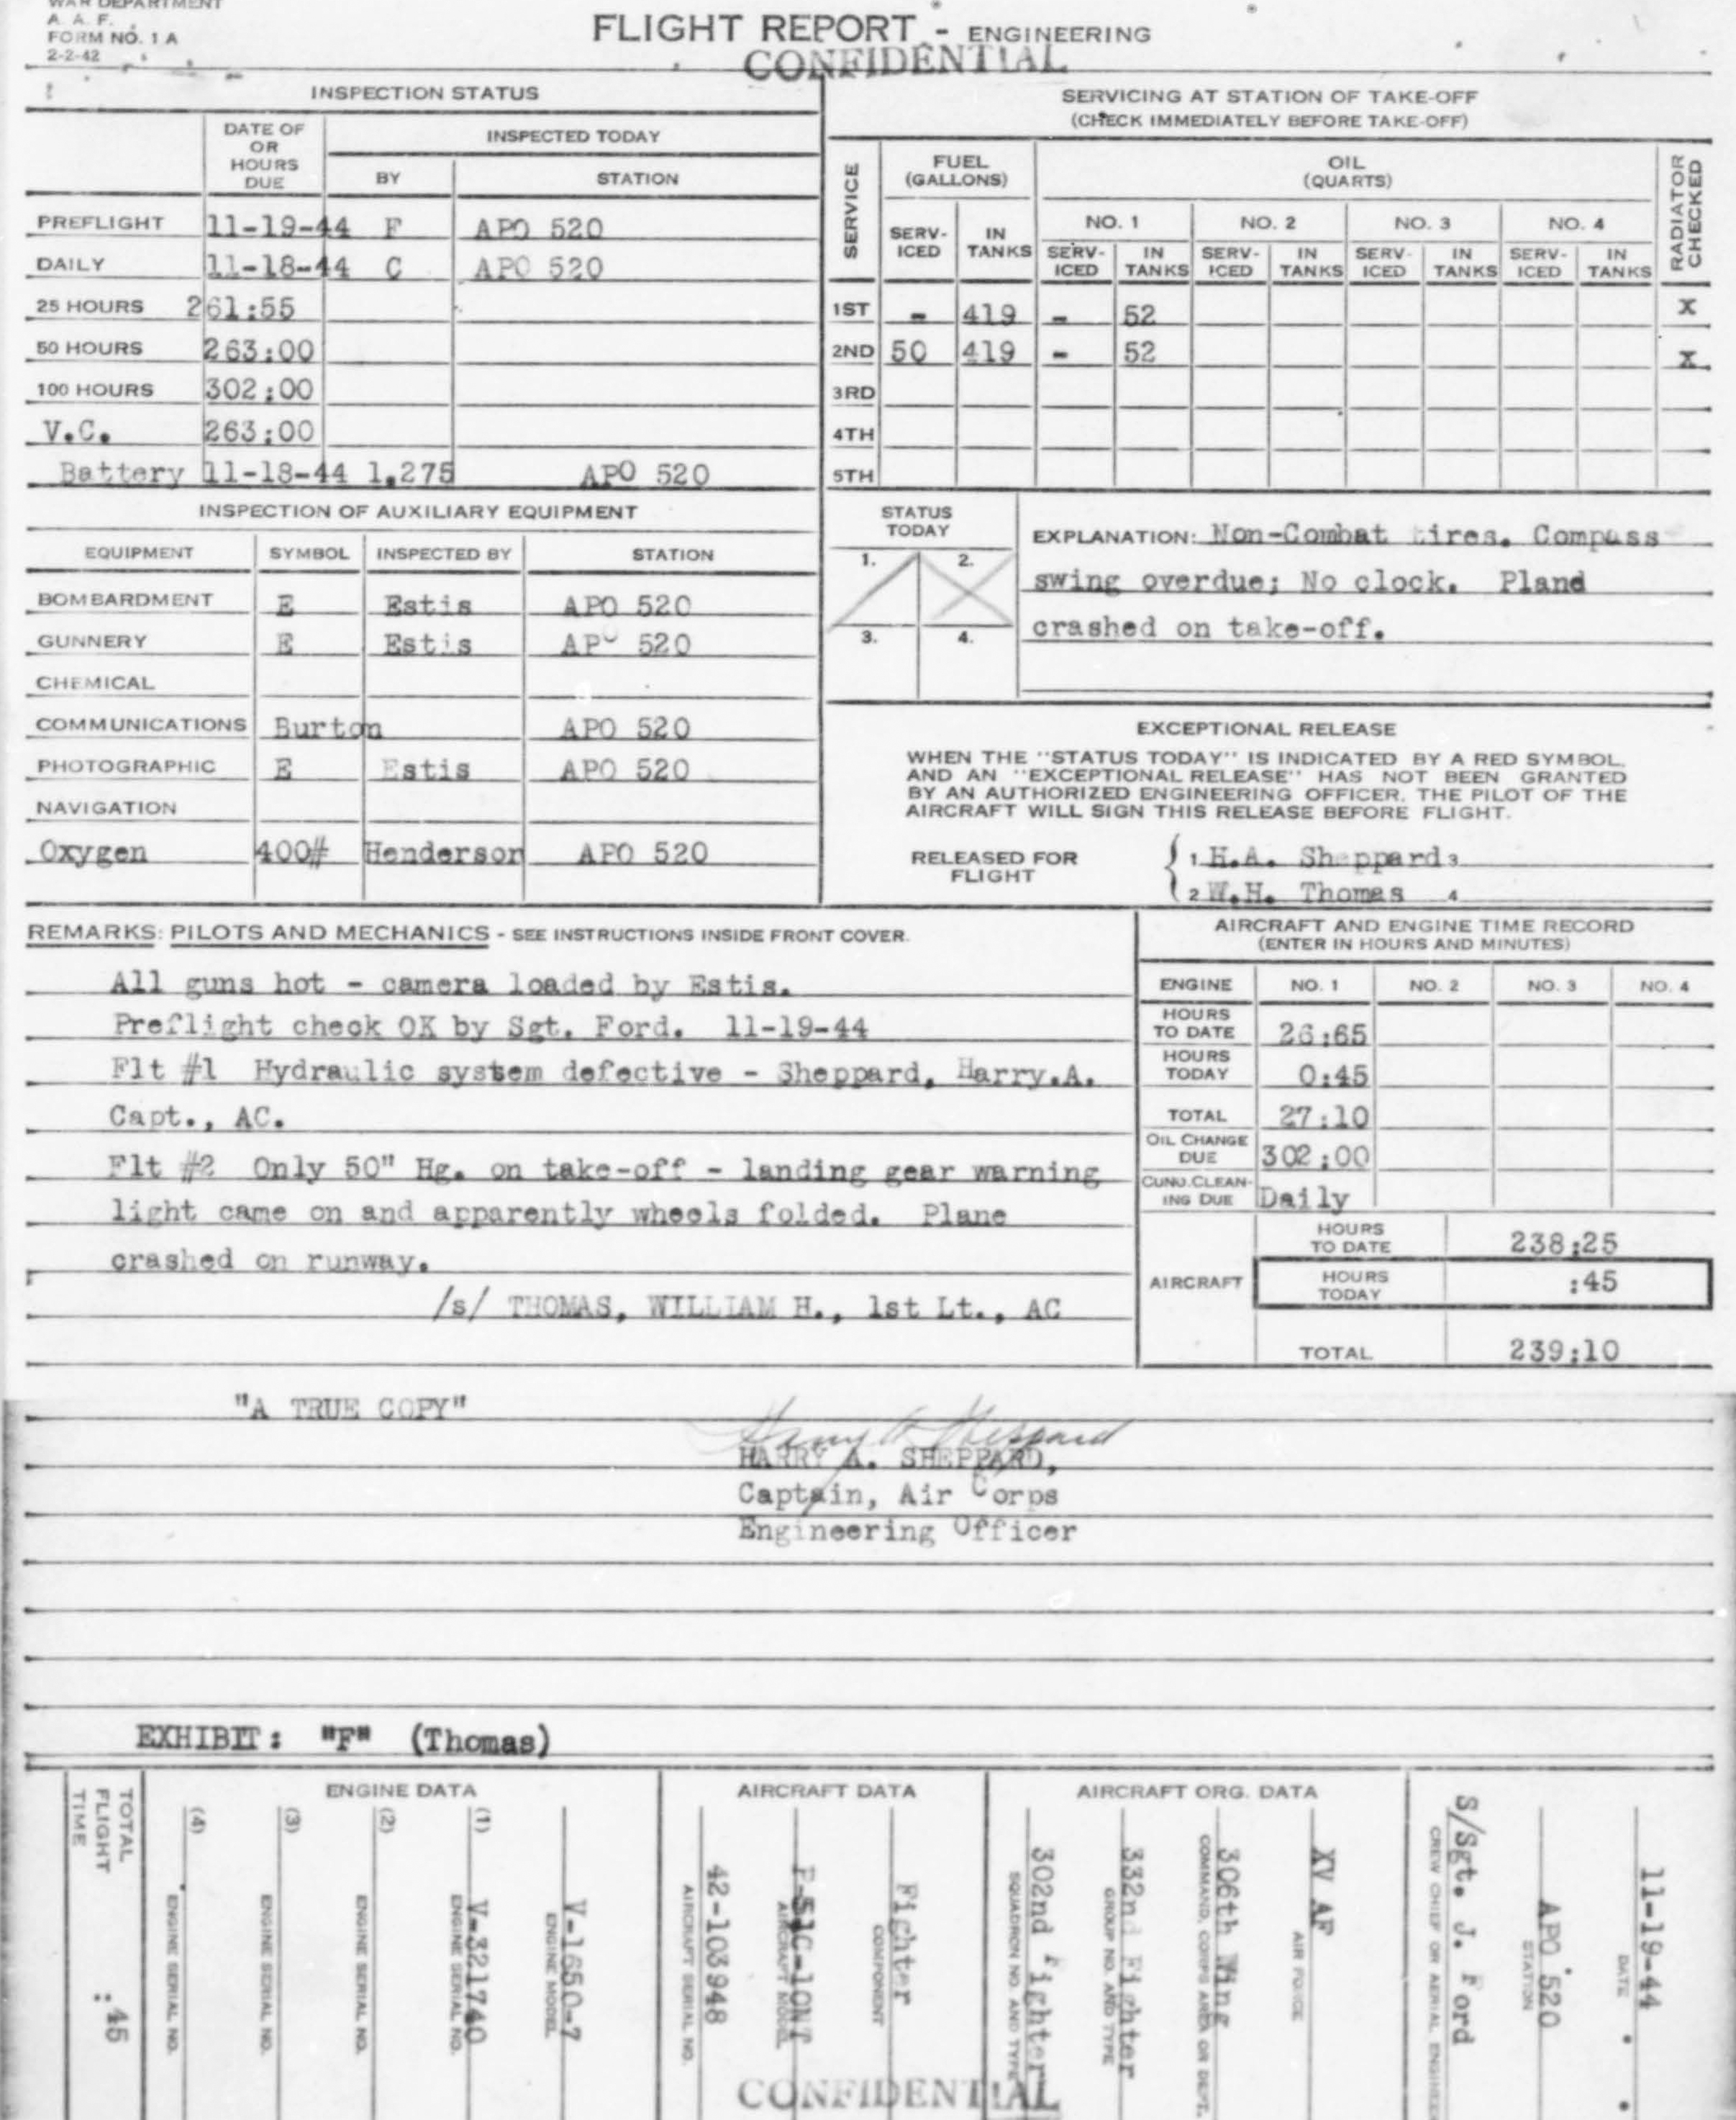 WAR DEPARTMENT
A. A. F.
FORM NO. 1 A
2-2-42
FLIGHT REPORT - ENGINEERING
CONFIDENTIAL
INSPECTION STATUS
DATE OF OR HOURS DUE
INSPECTED TODAY
BY STATION
PREFLIGHT 11-19-44 F APO 520
DAILY 11-18-44 C APO 520
25 HOURS 261:55
50 HOURS 263:00
100 HOURS 302:00
V.C. 263:00
Battery 11-18-44 1.275 APO 520
SERVICING AT STATION OF TAKE-OFF
(CHECK IMMEDIATELY BEFORE TAKE-OFF)
SERVICE
FUEL (GALLONS)
OIL (QUARTS)
RADIATOR CHECKED
NO. 1 NO. 2 NO. 3 NO. 4
SERV-ICED IN TANKS SERV-ICED IN TANKS SERV-ICED IN TANKS SERV-ICED IN TANKS SERV-ICED IN TANKS
1ST - 419 - 52 X
2ND 50 419 - 52 X
3RD
4TH
5TH
INSPECTION OF AUXILIARY EQUIPMENT
EQUIPMENT SYMBOL INSPECTED BY STATION
BOMBARDMENT E Estis APO 520
GUNNERY E Estis APO 520
CHEMICAL
COMMUNICATIONS Burton APO 520
PHOTOGRAPHIC E Estis APO 520
NAVIGATION
Oxygen 400# Henderson APO 520
STATUS TODAY
1. 2.
3. 4.
EXPLANATION: Non-Combat tires. Compass
swing overdue; No clock. Pland
crashed on take-off.
EXCEPTIONAL RELEASE
WHEN THE "STATUS TODAY" IS INDICATED BY A RED SYMBOL,
AND AN "EXCEPTIONAL RELEASE" HAS NOT BEEN GRANTED
BY AN AUTHORIZED ENGINEERING OFFICER, THE PILOT OF THE
AIRCRAFT WILL SIGN THIS RELEASE BEFORE FLIGHT.
RELEASED FOR FLIGHT
1 H.A. Sheppard 3
2 W.H. Thomas 4
REMARKS: PILOTS AND MECHANICS - SEE INSTRUCTIONS INSIDE FRONT COVER.
All guns hot - camera loaded by Estis.
Preflight check OK by Sgt. Ford. 11-19-44
Flt #1 Hydraulic system defective - Sheppard, Harry.A.
Capt., AC.
Flt #2 Only 50" Hg. on take-off - landing gear warning
light came on and apparently wheels folded. Plane
crashed on runway.
/s/ THOMAS, WILLIAM H., 1st Lt., AC
AIRCRAFT AND ENGINE TIME RECORD
(ENTER IN HOURS AND MINUTES)
ENGINE NO. 1 NO. 2 NO. 3 NO. 4
HOURS TO DATE 26:65
HOURS TODAY 0:45
TOTAL 27:10
OIL CHANGE DUE 302:00
CUNO.CLEAN-ING DUE Daily
AIRCRAFT
HOURS TO DATE 238:25
HOURS TODAY :45
TOTAL 239:10
"A TRUE COPY"
Harry A. Sheppard
HARRY A. SHEPPARD,
Captain, Air Corps
Engineering Officer
EXHIBIT: "F" (Thomas)
TOTAL FLIGHT TIME
:45
ENGINE DATA
(4) ENGINE SERIAL NO.
(3) ENGINE SERIAL NO.
(2) ENGINE SERIAL NO.
(1) V-321740
ENGINE SERIAL NO.
V-1650-7
ENGINE MODEL
AIRCRAFT DATA
42-103948
AIRCRAFT SERIAL NO.
P-51C-10NT
AIRCRAFT MODEL
Fighter
COMPONENT
AIRCRAFT ORG. DATA
302nd Fighter
SQUADRON NO. AND TYPE
332nd Fighter
GROUP NO. AND TYPE
306th Wing
COMMAND, CORPS AREA OR DEPT.
XV AF
AIR FORCE
S/Sgt. J. Ford
CREW CHIEF OR AERIAL ENGINEER
APO 520
STATION
11-19-44
DATE
CONFIDENTIAL